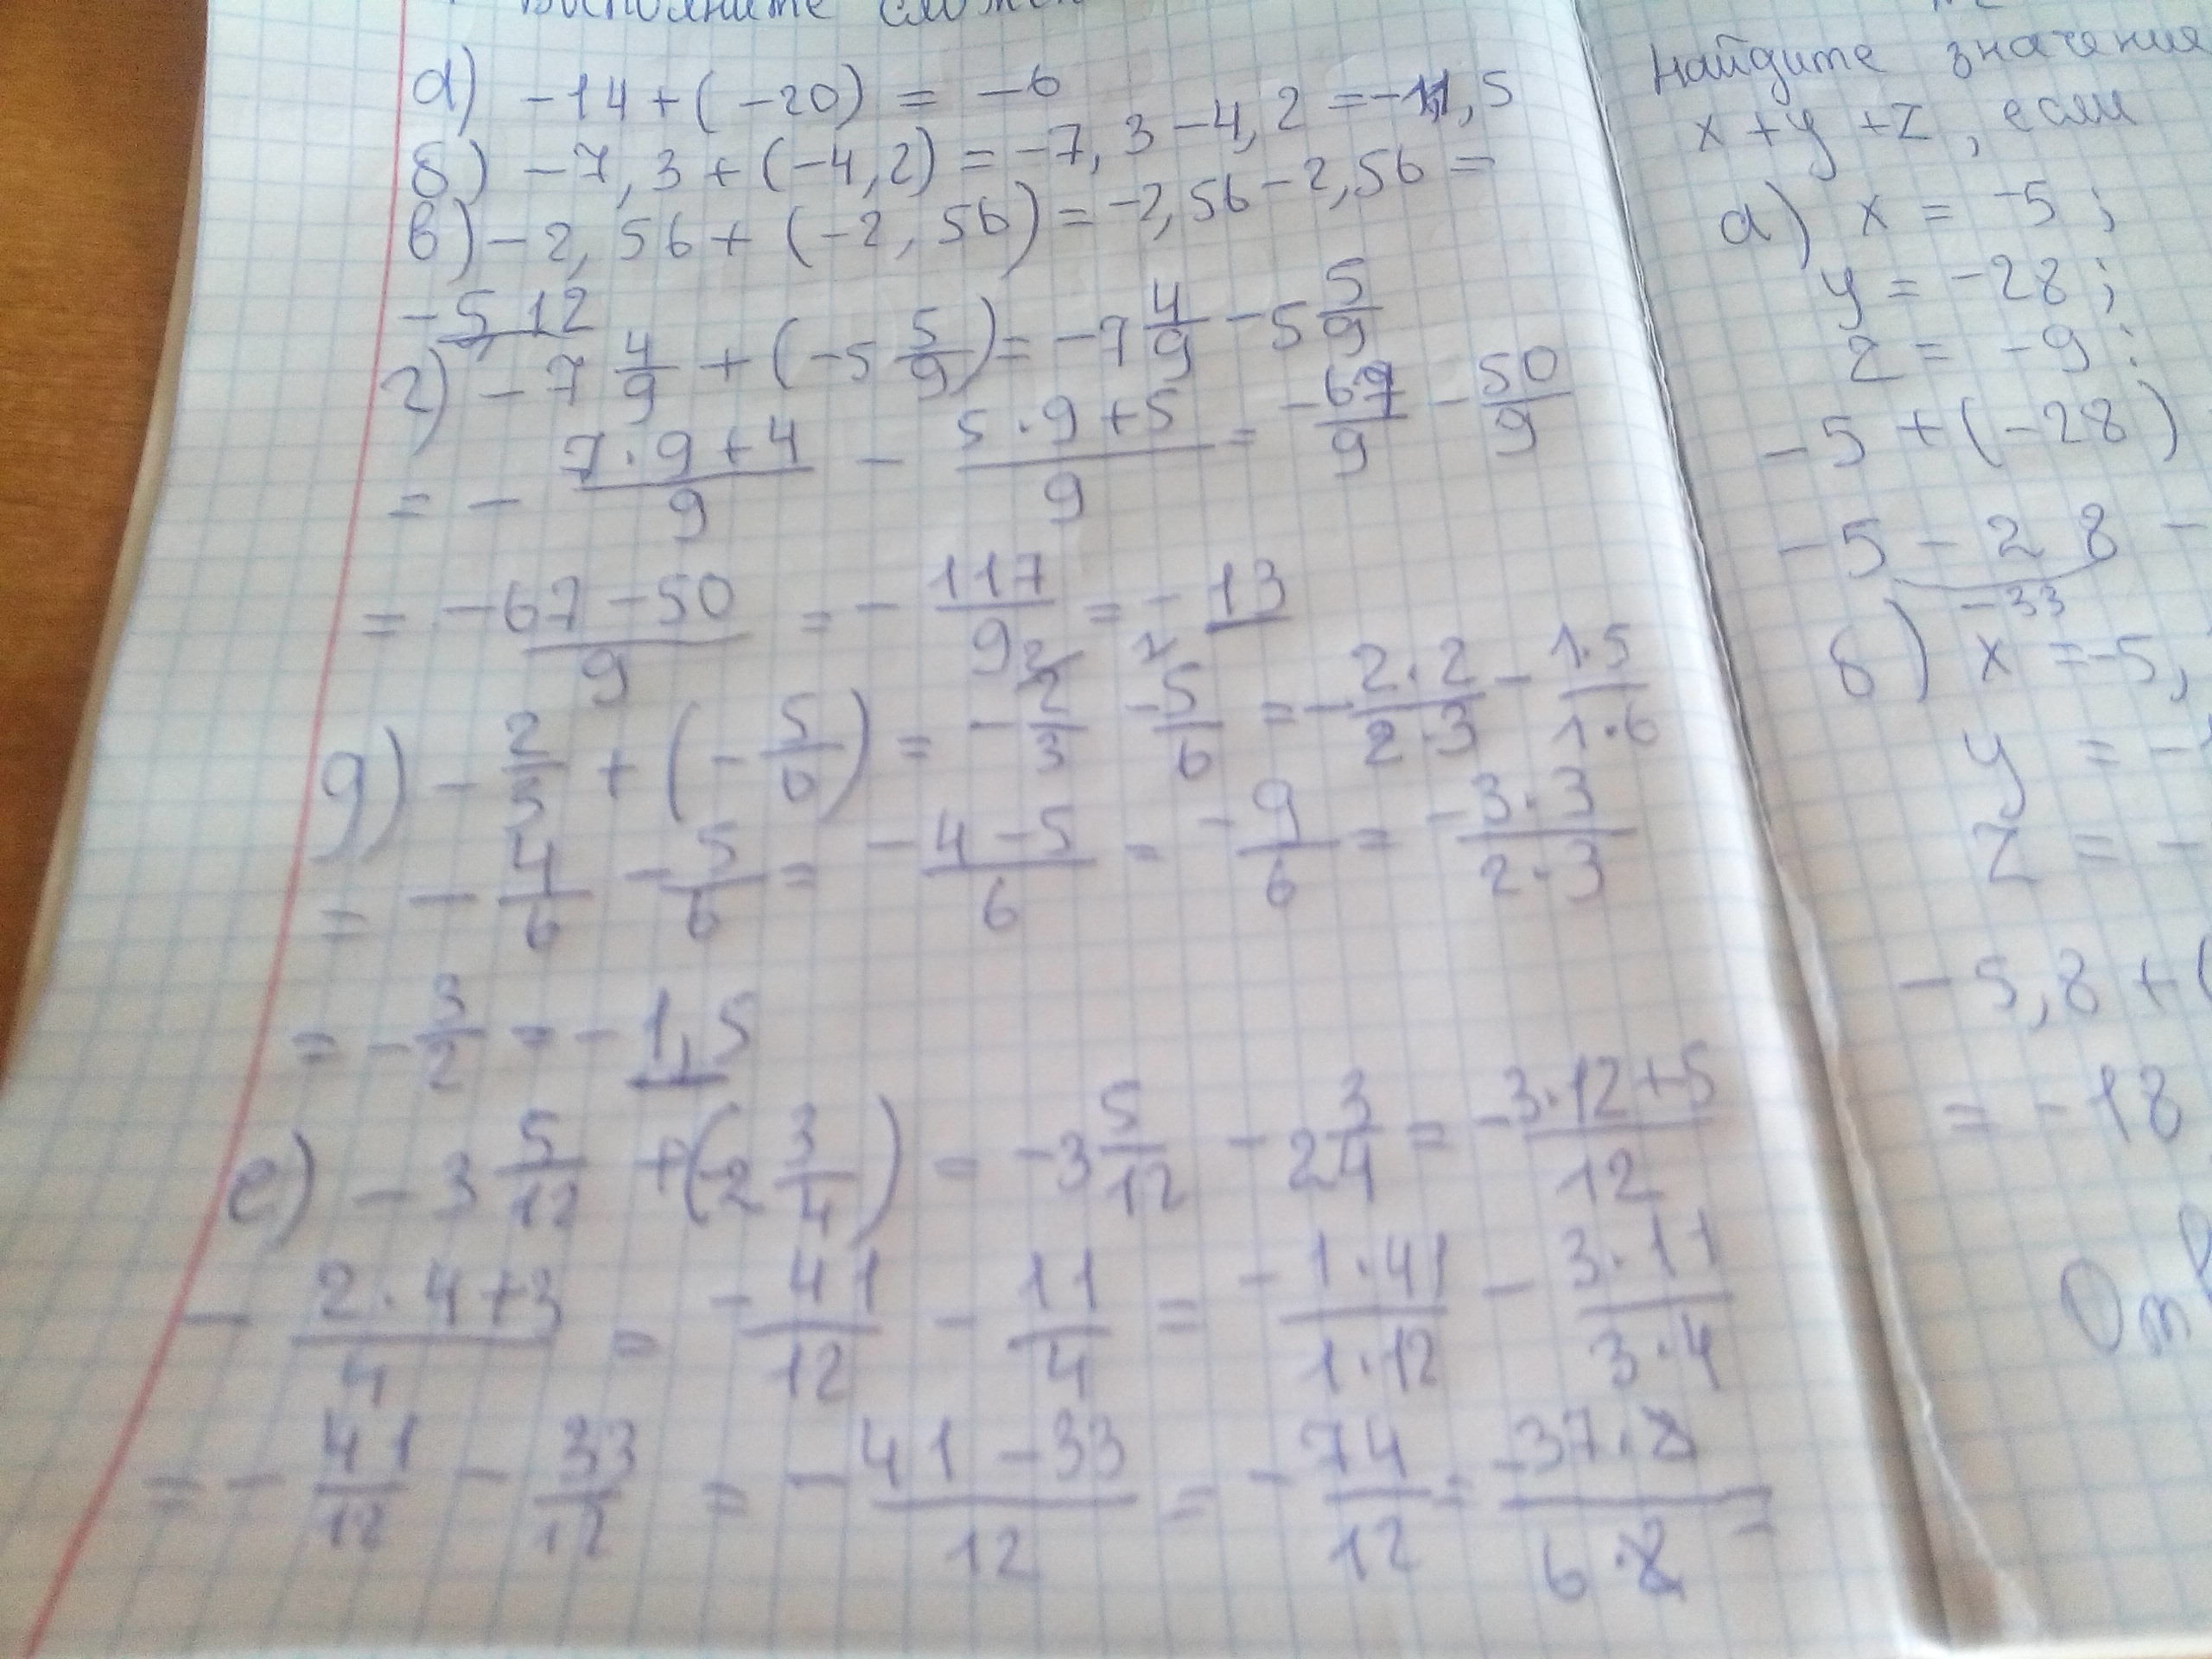 Выполните
а) -14+(-20) = -6
б) -7,3+(-4,2) = -7,3-4,2 = -11,5
в) -2,56+(-2,56) = -2,56-2,56 =
-5,12
г) -7 4/9 + (-5 5/9) = -7 4/9 - 5 5/9
= - (7·9+4)/9 - (5·9+5)/9 = -67/9 - 50/9
= (-67-50)/9 = - 117/9 = - 13
д) - 2/3 + (- 5/6) = - 2/3 - 5/6 = - (2·2)/(2·3) - (1·5)/(1·6)
= - 4/6 - 5/6 = (-4-5)/6 = - 9/6 = - (3·3)/(2·3)
= - 3/2 = - 1,5
е) -3 5/12 + (-2 3/4) = -3 5/12 - 2 3/4 = - (3·12+5)/12
- (2·4+3)/4 = - 41/12 - 11/4 = - (1·41)/(1·12) - (3·11)/(3·4)
= - 41/12 - 33/12 = (-41-33)/12 = - 74/12 = (-37·2)/(6·2) =
Найдите значения
x+y+z, если
а) x = -5;
y = -28;
z = -9:
-5+(-28)
-5-28-
-33
б) x = -5,
y = -
z = -
-5,8+(
= -18